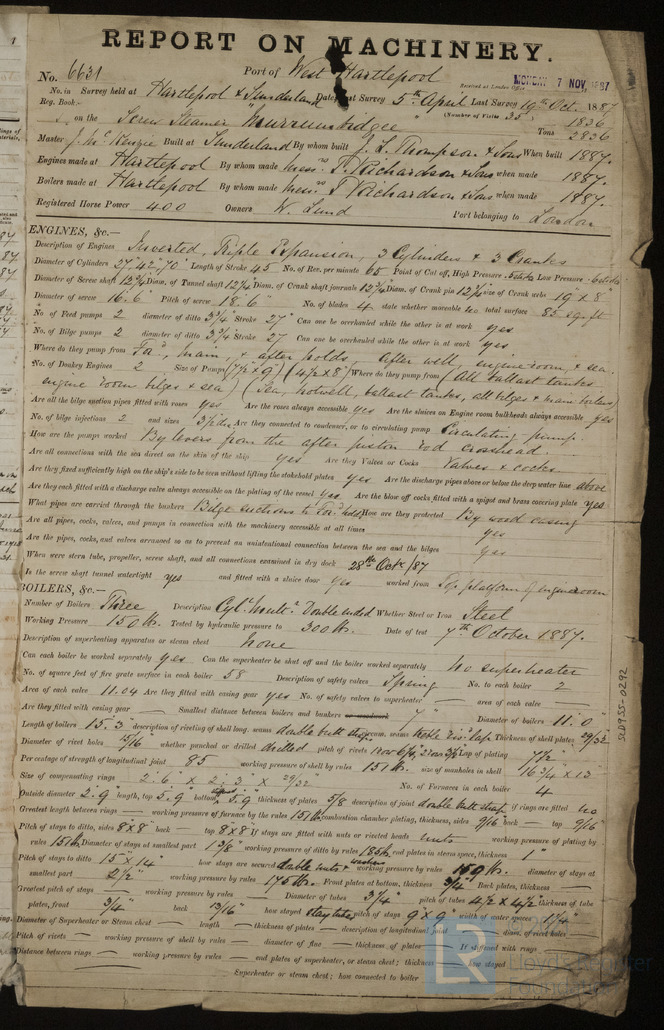 REPORT ON MACHINERY.
No. 6631 Port of West Hartlepool Received at London Office MONDAY 7 NOV, 1887
No. in Survey held at Hartlepool & Sunderland Date, Survey 5th April Last Survey 19th Oct. 1887
Reg. Book.- (Number of Visits 35) 1836
on the Screw Steamer Murrumbidgee Tons 2826
Master J. McKenzie Built at Sunderland By whom built J. L. Thompson & Sons When built 1887.
Engines made at Hartlepool By whom made Messrs T. Richardson & Sons when made 1887.
Boilers made at Hartlepool By whom made Messrs T Richardson & Sons when made 1887.
Registered Horse Power 400 Owners W. Lund Port belonging to London
ENGINES, &c.—
Description of Engines Inverted, Triple Expansion, 3 Cylinders & 3 Cranks
Diameter of Cylinders 27" 42" 70" Length of Stroke 45 No. of Rev. per minute 65 Point of Cut off, High Pressure Low Pressure
Diameter of Screw shaft 12 3/4 Diam. of Tunnel shaft 12 1/4 Diam. of Crank shaft journals 12 3/4 Diam. of Crank pin 12 3/4 size of Crank webs 19" x 8"
Diameter of screw 16.6" Pitch of screw 18.6" No. of blades 4 state whether moveable no total surface 85 sq. ft
No. of Feed pumps 2 diameter of ditto 3 3/4 Stroke 27" Can one be overhauled while the other is at work yes
No. of Bilge pumps 2 diameter of ditto 3 3/4 Stroke 27 Can one be overhauled while the other is at work yes
Where do they pump from For'd, main, & after holds, after well, engine room, & sea.
No. of Donkey Engines 2 Size of Pumps (7 1/2 x 9) (4 1/2 x 8) Where do they pump from (All ballast tanks
engine room bilges & sea) (Sea, hotwell, ballast tanks, all bilges & main boilers)
Are all the bilge suction pipes fitted with roses yes Are the roses always accessible yes Are the sluices on Engine room bulkheads always accessible yes
No. of bilge injections 2 and sizes Are they connected to condenser, or to circulating pump Circulating pump.
How are the pumps worked By levers from the after piston rod crosshead.
Are all connections with the sea direct on the skin of the ship yes Are they Valves or Cocks Valves & cocks
Are they fixed sufficiently high on the ship's side to be seen without lifting the stokehold plates yes Are the discharge pipes above or below the deep water line above
Are they each fitted with a discharge valve always accessible on the plating of the vessel yes Are the blow off cocks fitted with a spigot and brass covering plate yes
What pipes are carried through the bunkers Bilge suctions to For'd hold How are they protected By wood casing
Are all pipes, cocks, valves, and pumps in connection with the machinery accessible at all times yes
Are the pipes, cocks, and valves arranged so as to prevent an unintentional connection between the sea and the bilges yes
When were stern tube, propeller, screw shaft, and all connections examined in dry dock 28th Oct/87
Is the screw shaft tunnel watertight yes and fitted with a sluice door yes worked from Top platform of engine room
BOILERS, &c.—
Number of Boilers Three Description Cyl. Mult. Double ended Whether Steel or Iron Steel
Working Pressure 150 lb. Tested by hydraulic pressure to 300 lb. Date of test 7th October 1887.
Description of superheating apparatus or steam chest None
Can each boiler be worked separately yes Can the superheater be shut off and the boiler worked separately No superheater
No. of square feet of fire grate surface in each boiler 58 Description of safety valves Spring No. to each boiler 2
Area of each valve 11.04 Are they fitted with easing gear yes No. of safety valves to superheater — area of each valve —
Are they fitted with easing gear — Smallest distance between boilers and bunkers or woodwork 7" Diameter of boilers 11.0"
Length of boilers 15.3" description of riveting of shell long. seams double butt strap circum. seams Thickness of shell plates 29/32
Diameter of rivet holes 15/16" whether punched or drilled drilled pitch of rivets Lap of plating 7 1/2
Percentage of strength of longitudinal joint 85 working pressure of shell by rules 151 lb. size of manholes in shell 16 3/4 x 13
Size of compensating rings 2'6" x 2'3" x 29/32" No. of Furnaces in each boiler 4
Outside diameter 2.9" length, top 5.9" bottom 5.9" thickness of plates 5/8 description of joint double butt strap if rings are fitted no
Greatest length between rings — working pressure of furnace by the rules 151 lb. combustion chamber plating, thickness, sides 9/16" back — top 9/16"
Pitch of stays to ditto, sides 8"x8" back — top 8"x8" If stays are fitted with nuts or riveted heads nuts working pressure of plating by
rules 151 lb. Diameter of stays at smallest part 1 3/8" working pressure of ditto by rules end plates in steam space, thickness 1"
Pitch of stays to ditto 15" x 14" how stays are secured double nuts & washers working pressure by rules diameter of stays at
smallest part 2 1/2" working pressure by rules 175 lb. Front plates at bottom, thickness 3/4" Back plates, thickness —
Greatest pitch of stays — working pressure by rules — Diameter of tubes 3 1/4 pitch of tubes 4 1/2 x 4 1/2" thickness of tube
plates, front 3/4" back 13/16" how stayed stay tubes pitch of stays 9" x 9" width of water spaces 1 1/4"
Diameter of Superheater or Steam chest — length — thickness of plates — description of longitudinal joint — diam. of rivet holes —
Pitch of rivets — working pressure of shell by rules — diameter of flue — thickness of plates — If stiffened with rings —
Distance between rings — working pressure by rules — end plates of superheater, or steam chest; thickness — how stayed —
Superheater or steam chest; how connected to boiler
SLD955-0292
Lloyd's Register
Foundation